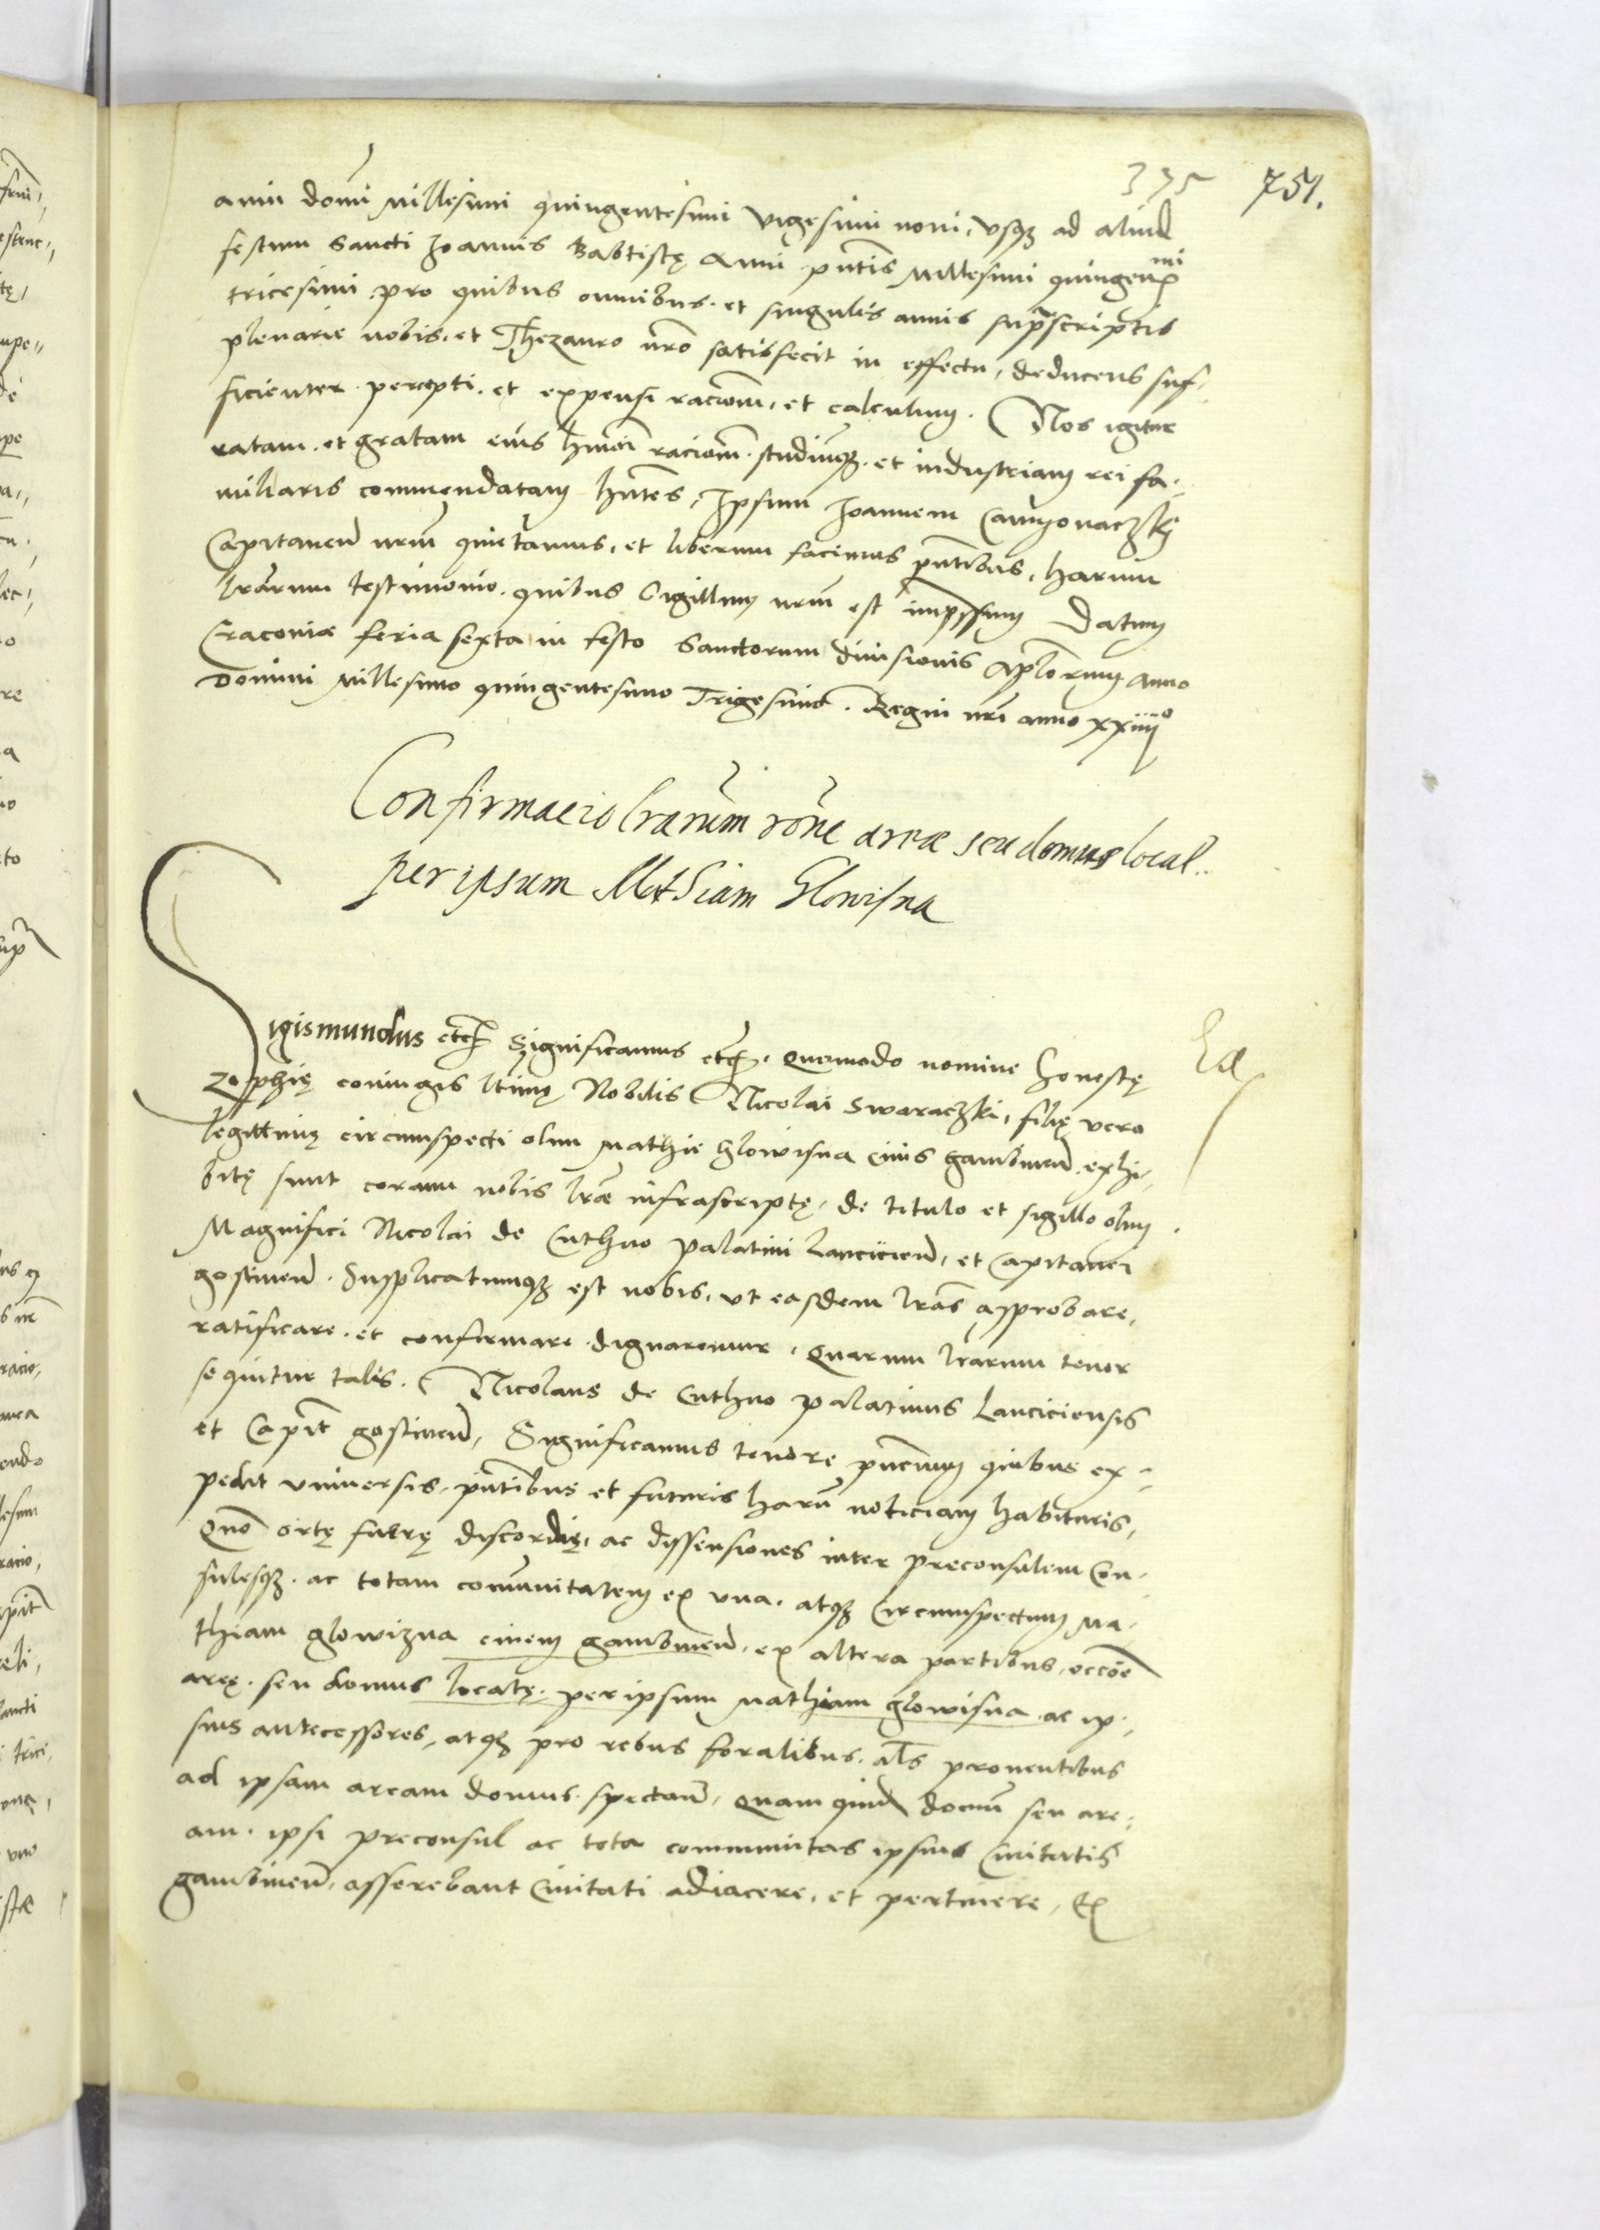 375 751.
anni domi Millesimi quingentesimi vigesimi noni, usq3 ad aliud
festum Sancti Joannis Babtistę Anni pntis Millesimi quingen^mi
tricesimi. pro quibus omnibus. et singulis annis suprascriptis
plenarie nobis. et Thezauro nro satisfecit in effectu, deducens suf-
ficienter. percepti. et expensi racionem, et calculum. Nos igitur
ratam. et gratam eius hmoi racionem. studiumq3. et industriam rei fa-
miliaris commendatam hntes, Ipsum Joannem
Capitaneu nrm quietamus, et liberum facimus pntibus, harum
lrarum testimonio. quibus Sigillum nrm est impssum Datum
Cracoviæ feria sexta in festo Sanctorum divisionis Aplorum Anno
Domini Millesimo quingentesimo Trigesimo. Regni nri anno xxiiii°
Confirmacio lrarum rone areæ seu domus local..
per ipsum Mathiam Glowisna
Sigismundus etc Significamus etc. Quomodo nomine honestę
Zophię coniugis ltimę Nobilis Nicolai Swaraczki, filię vero
legittimę circumspecti olim Mathie Glowisna civis gambinen. exhi-
bitę sunt coram nobis lræ infrascriptę, de titulo et sigillo olim
Magnifici Nicolai de Cuthno palatini Lancicien, et Capitanei
gostinen. Supplicatumq3 est nobis, ut easdem lras approbare,
ratificare. et confirmare dignaremur. Quarum lrarum tenor
sequitur talis. Nicolaus de Cuthno palatinus Lanciciensis
et Capit gostinen, Significamus tenore pncium quibus ex-
pedit universis, pntibus et futuris haru noticiam habituris,
Quo ortę fuerę discordię, ac dissensiones inter preconsulem Con-
sulesq3. ac totam comunitatem ex una. atq3 Circumspectum Ma-
thiam glowizna civem gambinen, ex altera partibus, occoe
areę. seu domus locatę. per ipsum Mathiam glowisna. ac ip-
sius antecessores, atq3 pro rebus foralibus. als proventibus
ad ipsam aream domus. spectan, quam quid domu seu are-
am. ipsi preconsul ac tota communitas ipsius Civitatis
gambinen, asserebant Civitati adiacere, et pertinere, Ex